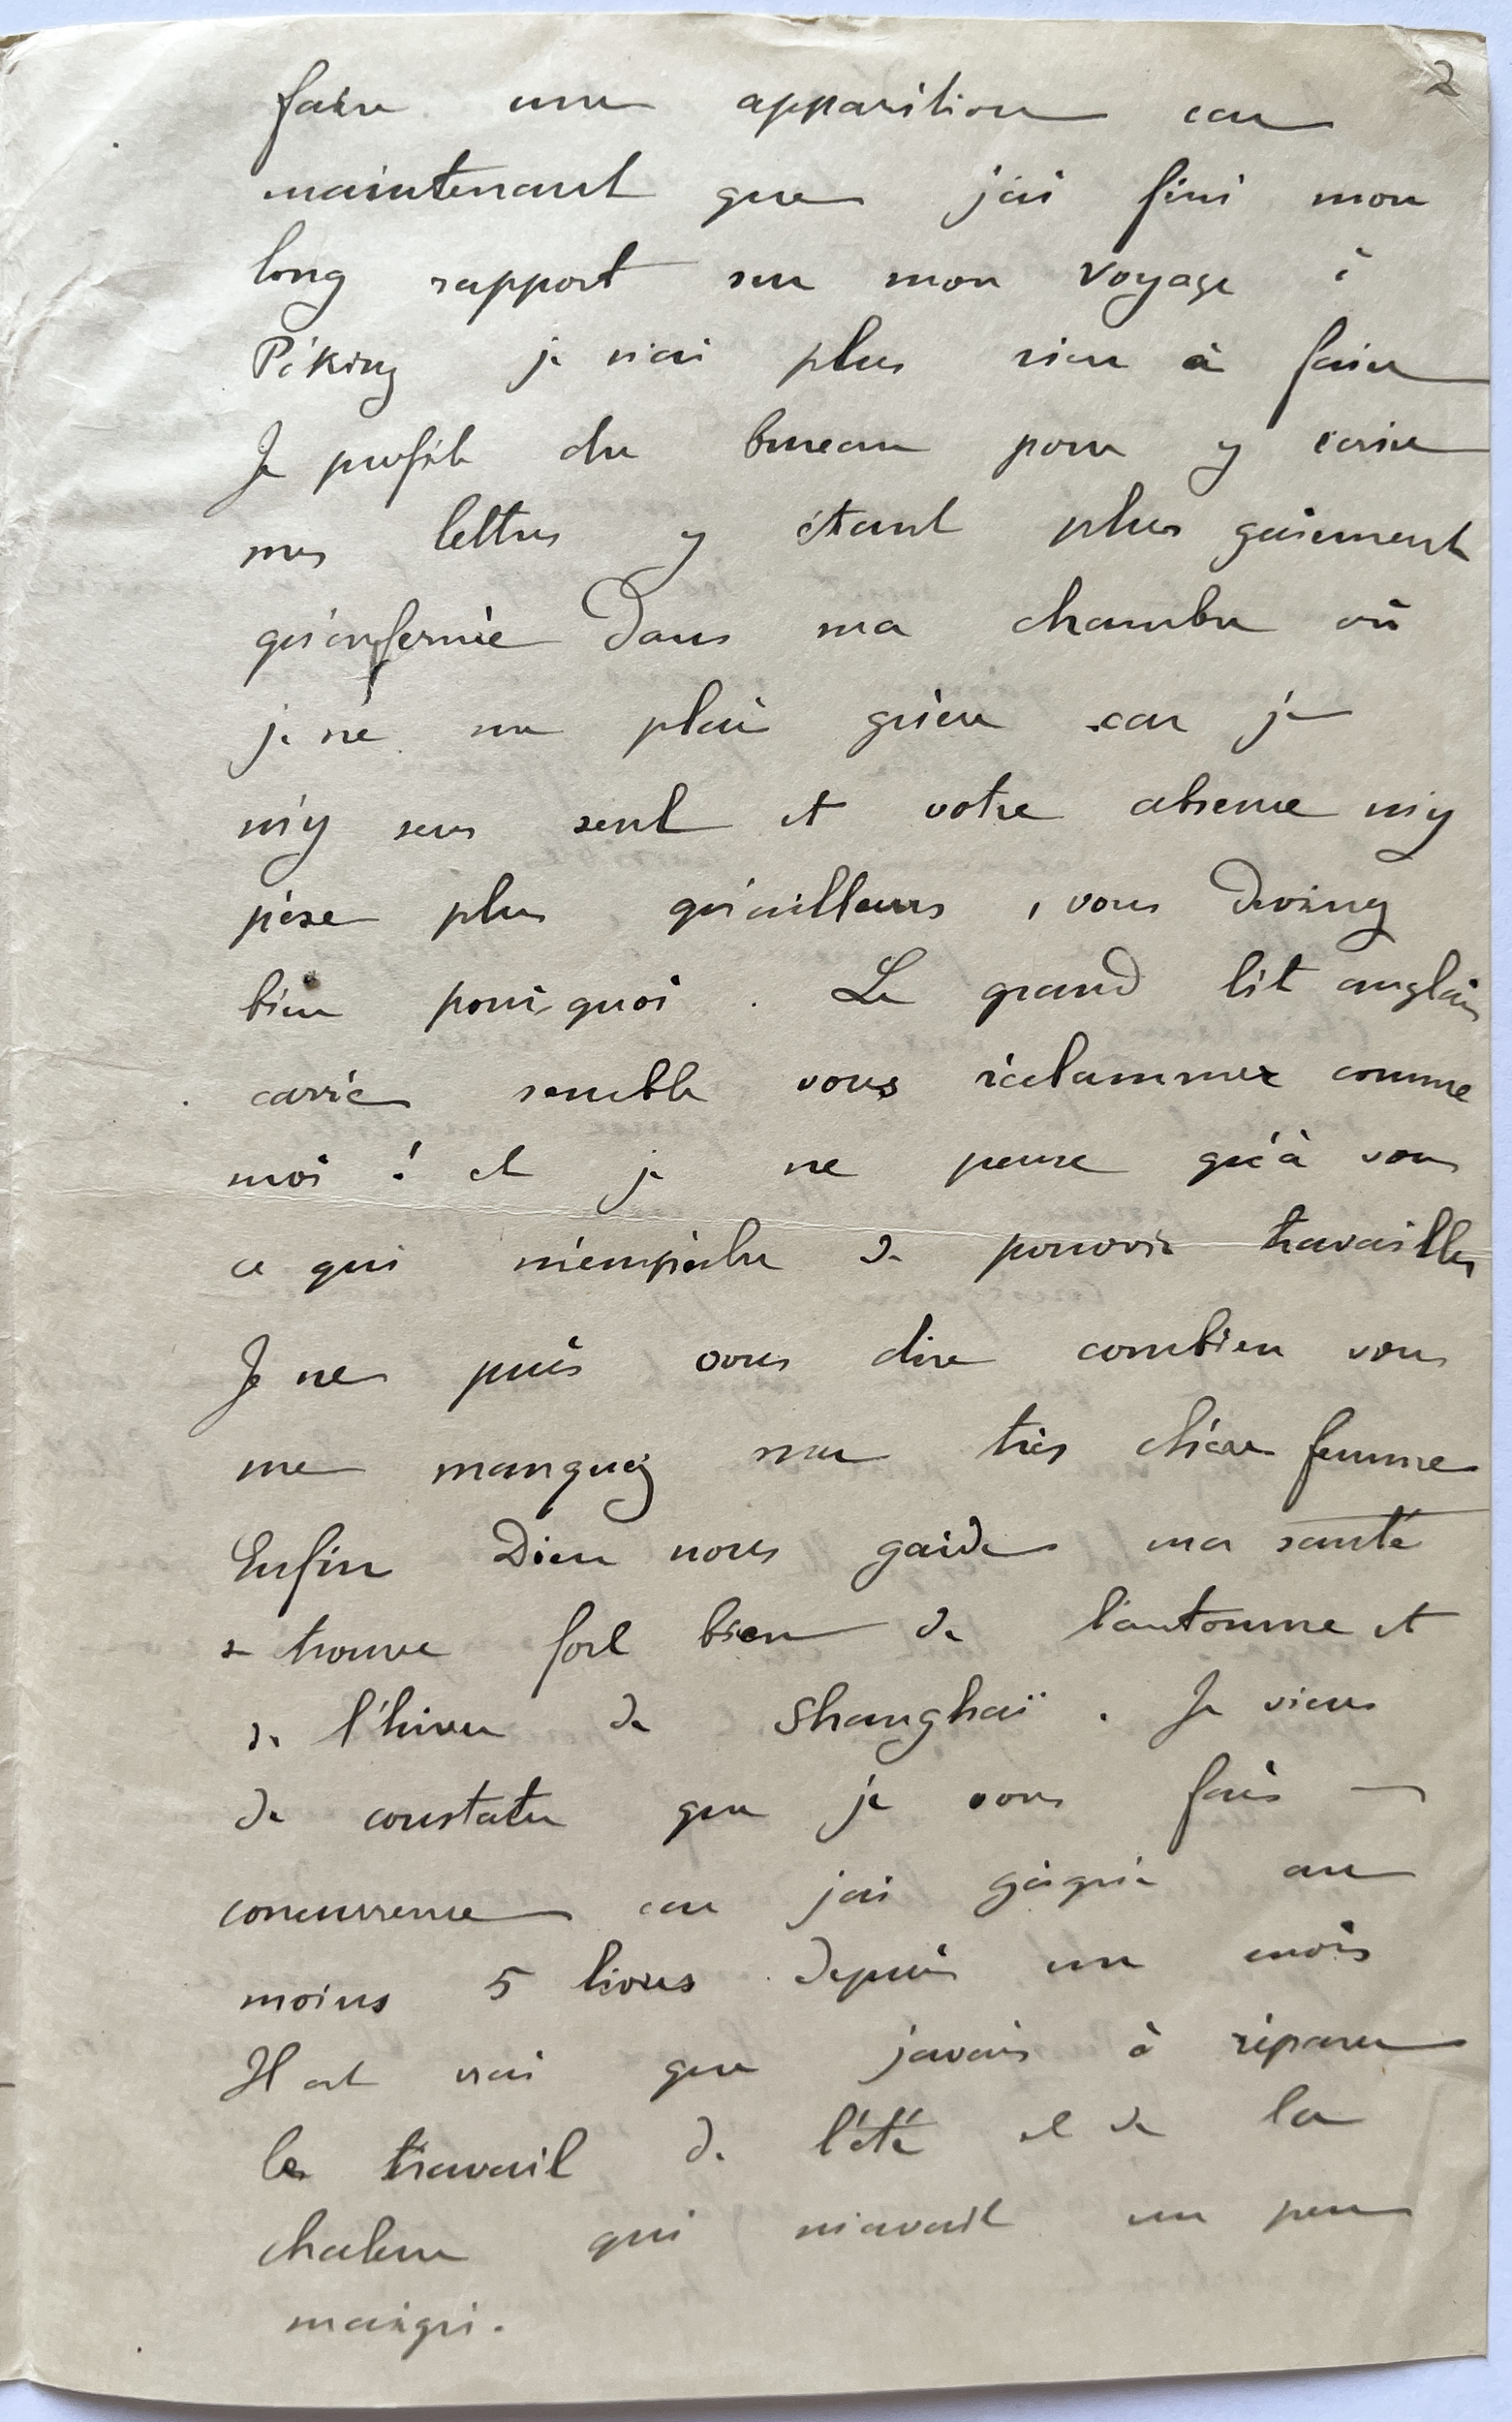 2
faire une apparition car
maintenant que j'ai fini mon
long rapport sur mon voyage à
Péking je n'ai plus rien à faire
Je profite du bureau pour y écrire
mes lettres y étant plus gaiement
qu'enfermé dans ma chambre où
je ne me plai guère car je
m'y sens seul et votre absence m'y
pèse plus qu'ailleurs, vous devinez
bien pourquoi. Le grand lit anglais
carré semble vous réclammer comme
moi ! et je ne pense qu'à vous
ce qui m'empêche de pouvoir travailler
Je ne puis vous dire combien vous
me manquez ma très chère femme
Enfin Dieu nous garde ma santé
se trouve fort bien de l'automne et
de l'hiver de Shanghaï. Je viens
de constater que je vous fais
concurrence car j'ai gagné au
moins 5 livres depuis un mois
Il est vrai que j'avais à réparer
le travail de l'été et de la
chaleur qui m'avait un peu
maigri.